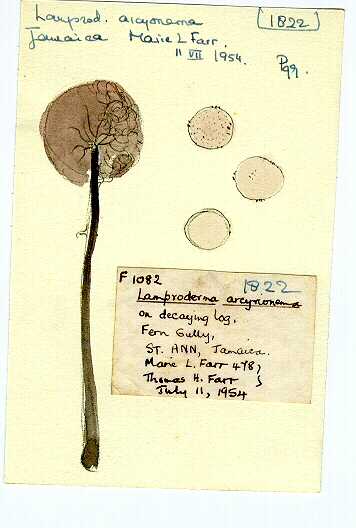 Lamprod. arcyrionema [1822]
Jamaica Marie L Farr.
11 VII 1954.
F 1082 1822
Lamproderma arcyrionema
on decaying log,
Fern Gully,
ST. ANN, Jamaica.
Marie L. Farr 478,
Thomas H. Farr }
July 11, 1954